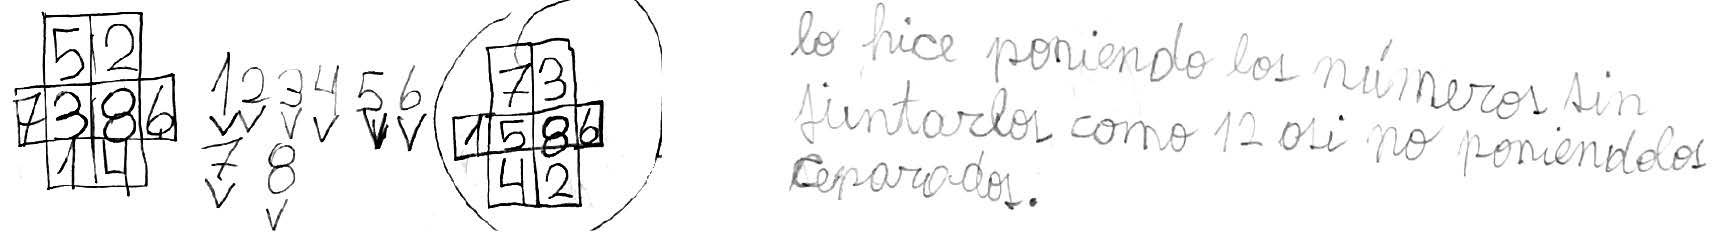 5 2
7 3 8 6
1 4
1 2 3 4 5 6
7 8
7 3
1 5 8 6
4 2
lo hice poniendo los números sin
juntarlos como 12 asi no poniendolos
ceparados.